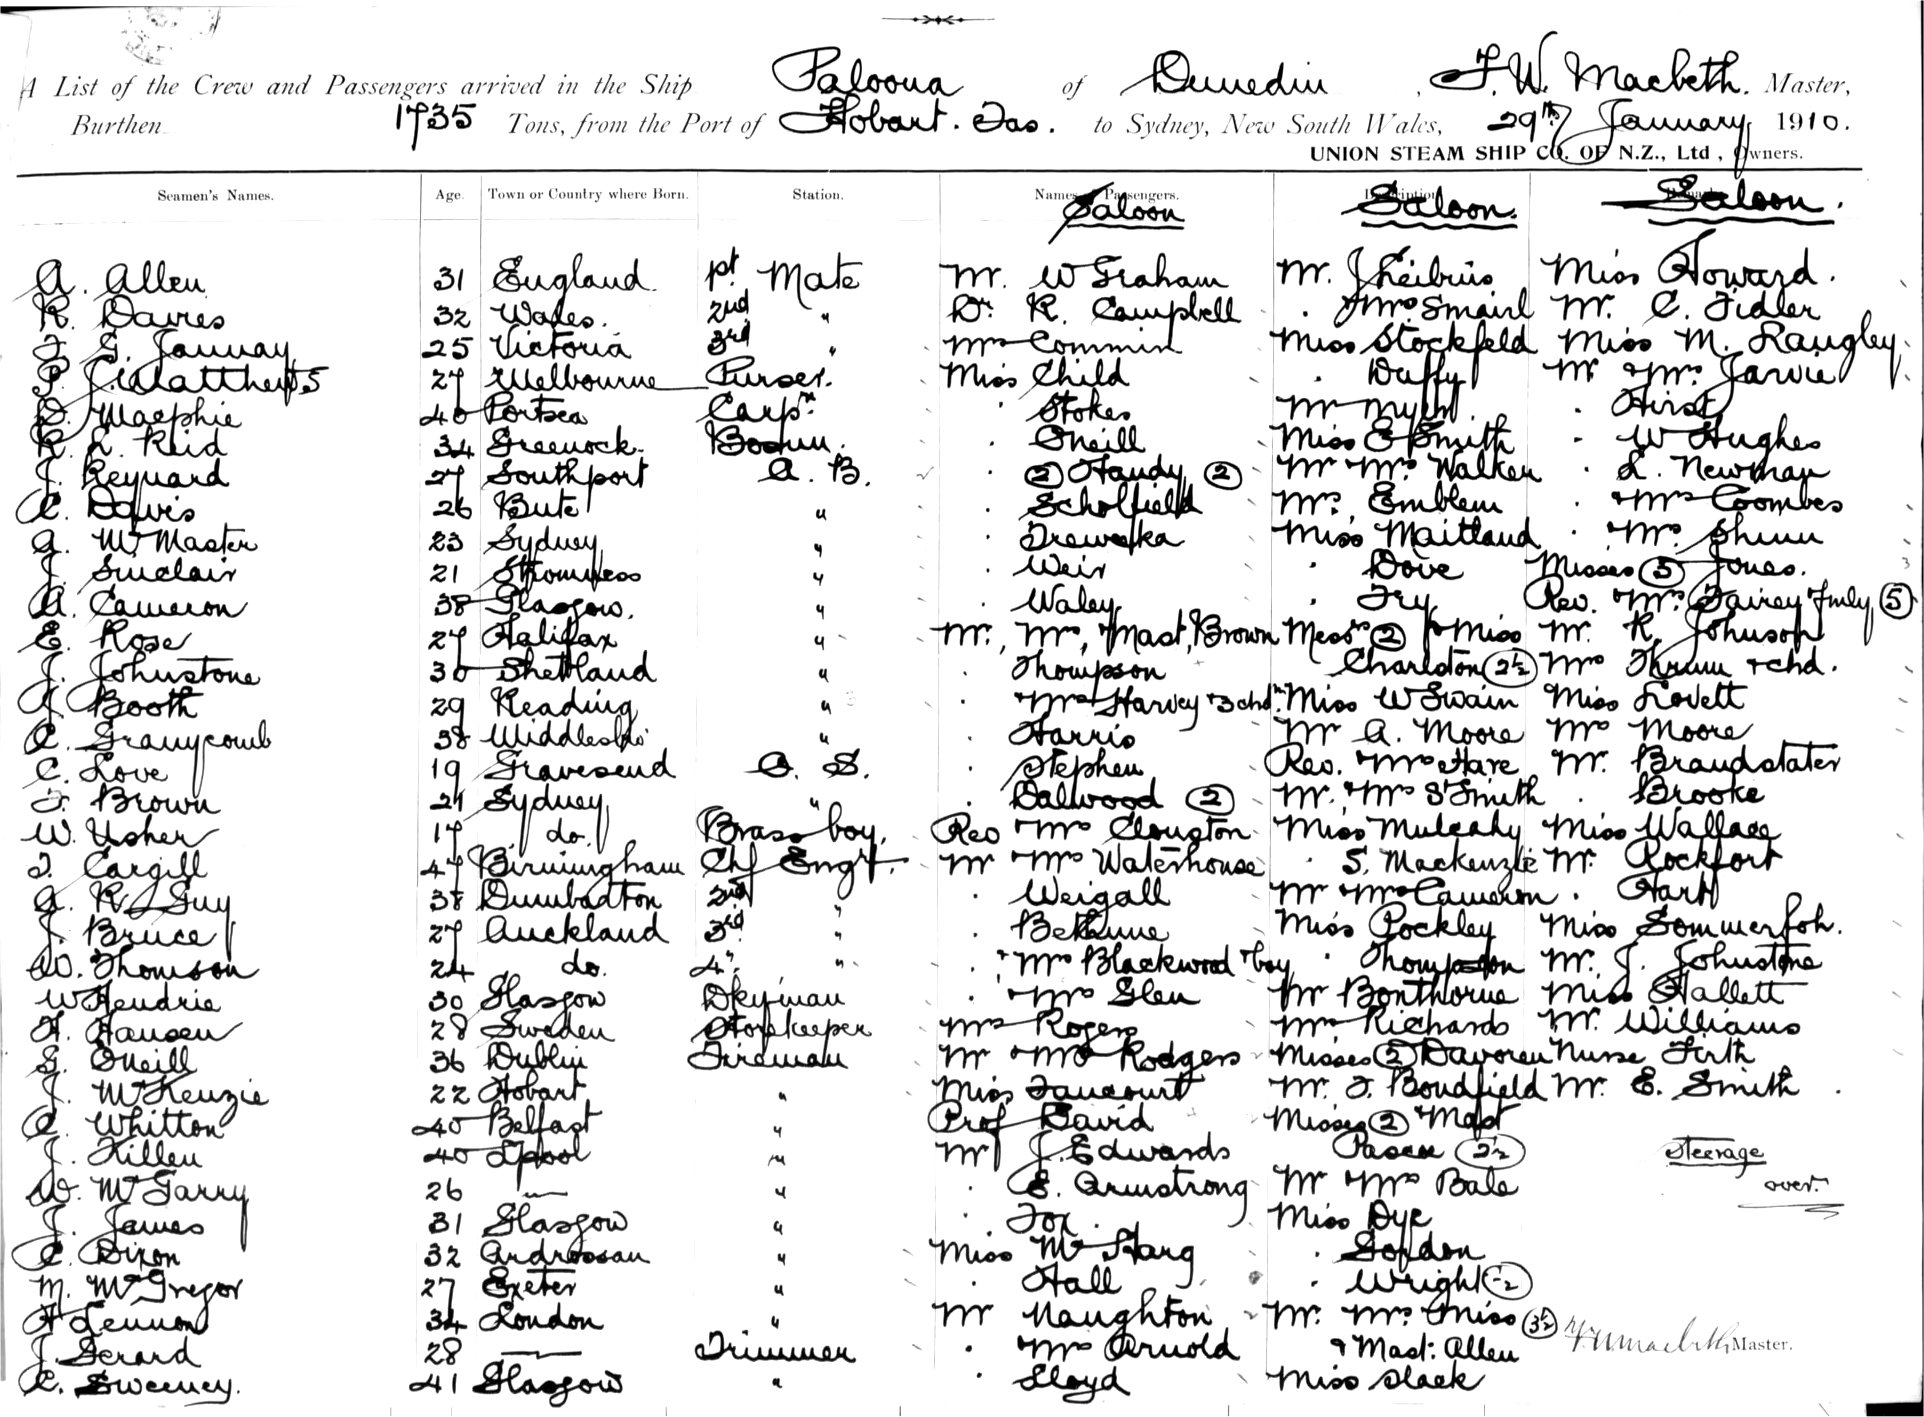 A List of the Crew and Passengers arrived in the Ship Paloona of Dunedin, F. W. Macbeth. Master,
Burthen 1735 Tons, from the Port of Hobart. Tas. to Sydney, New South Wales, 29th January 1910.
UNION STEAM SHIP CO. OF N.Z., Ltd, Owners.
Seamen's Names. Age. Town or Country where Born. Station. Names of Passengers. Description Remarks
Saloon Saloon. Saloon.
A. Allen 31 England 1st. Mate Mr. W Graham Mr. Miss Howard.
R. Davies 32 Wales. 2nd " Dr. R. Campbell . Mrs Smairl Mr. C. Fidler
F. G. Jannay 25 Victoria 3rd " Mrs Commin Miss Stockfeld Miss M. Langley
P. J. Matthews 27 Melbourne Purser. Miss Child . Duffy Mr & Mrs. Jarvie
D. Macphie 40 Portsea Carpr. . Stokes Mr . Hirst
R. L. Reid 34 Greenock. Bosun. . Oneill Miss E Smith . W Hughes
J. Reynard 27 Southport A. B. . ② Handy ② Mr Mrs. Walker . L. Newman
C. Davis 26 Bute " . Scholfield Mrs. Emblem . & Mrs Coombes
A. McMaster 23 Sydney " . Miss Maitland . Mrs. Shinn
J. Sinclair 21 Stromness " . Weir . Dove Misses ③ Jones.
A. Cameron 38 Glasgow. " . Waley . Fry Rev. & Mrs. Fairey & Fmly ⑤
E. Rose 27 Halifax " Mr., Mrs, & Mast, Brown Messrs ② & Miss Mr. R. Johnson
J. Johnstone 30 Shetland " . Thompson Charlston 2½ Mrs Thrum & chd.
J. Booth 29 Reading " . & Mrs Harvey & 3 chdn. Miss W Swain Miss Lovett
C. Grannycomb 38 Middlesbro' " . Harris Mr A. Moore Mrs Moore
C. Love 19 Gravesend O. S. . Stephen Rev. & Mrs Hare Mr. Brandstater
F. Brown 21 Sydney " . Dalwood ② Mr. & Mrs S Smith . Brooke
W. Usher 17 do. Brass boy. Rev & Mrs Clougton Miss Mulcahy Miss Wallace
T. Cargill 47 Birmingham Chf Engr. Mr & Mrs Waterhouse . S. Mackenzie Mr. Rockfort
A. R. Guy 38 Dumbadton 2nd " . Weigall Mr & Mrs Cameron . Hart
J. Bruce 27 Auckland 3rd. " . Bethune Miss Pockley Miss Sommerfoh.
W. Thomson 24 do. 4" " . & Mrs Blackwood & boy . Thompson Mr. J. Johnstone
W Hendrie 30 Glasgow Dkyman . & Mrs Glen Mr Bonthorne Miss Hallett
H. Hansen 28 Sweden Storekeeper Mrs Rogers Mrs Richards Mr. Williams
G. Oneill 36 Dublin Fireman Mr & Mrs Rodgers Misses ② Davoren Nurse Firth
J. McKenzie 22 Hobart " Miss Faucourt Mr. F. Bondfield Mr. E. Smith
C. Whitton 40 Belfast " Prof David Misses ② & Mast
J. Killen 40 L'pool " Mr J. Edwards Pascoe 2½ Steerage
W. McGarry 26 — " . E. Armstrong Mr & Mrs Bale over.
J. James 31 Glasgow " . Fox . Miss Dye
C. Dixon 32 Ardrossan " Miss McHarg . Gordon
M. McGregor 27 Exeter " . Hall . Wright ½
H Lennon 34 London " Mr Naughton Mr. Mrs. & Miss 3½
J. Gerard 28 — Trimmer . & Mrs Arnold & Mast: Allen F W Macbeth Master.
C. Sweeney. 41 Glasgow " . Lloyd Miss Slack